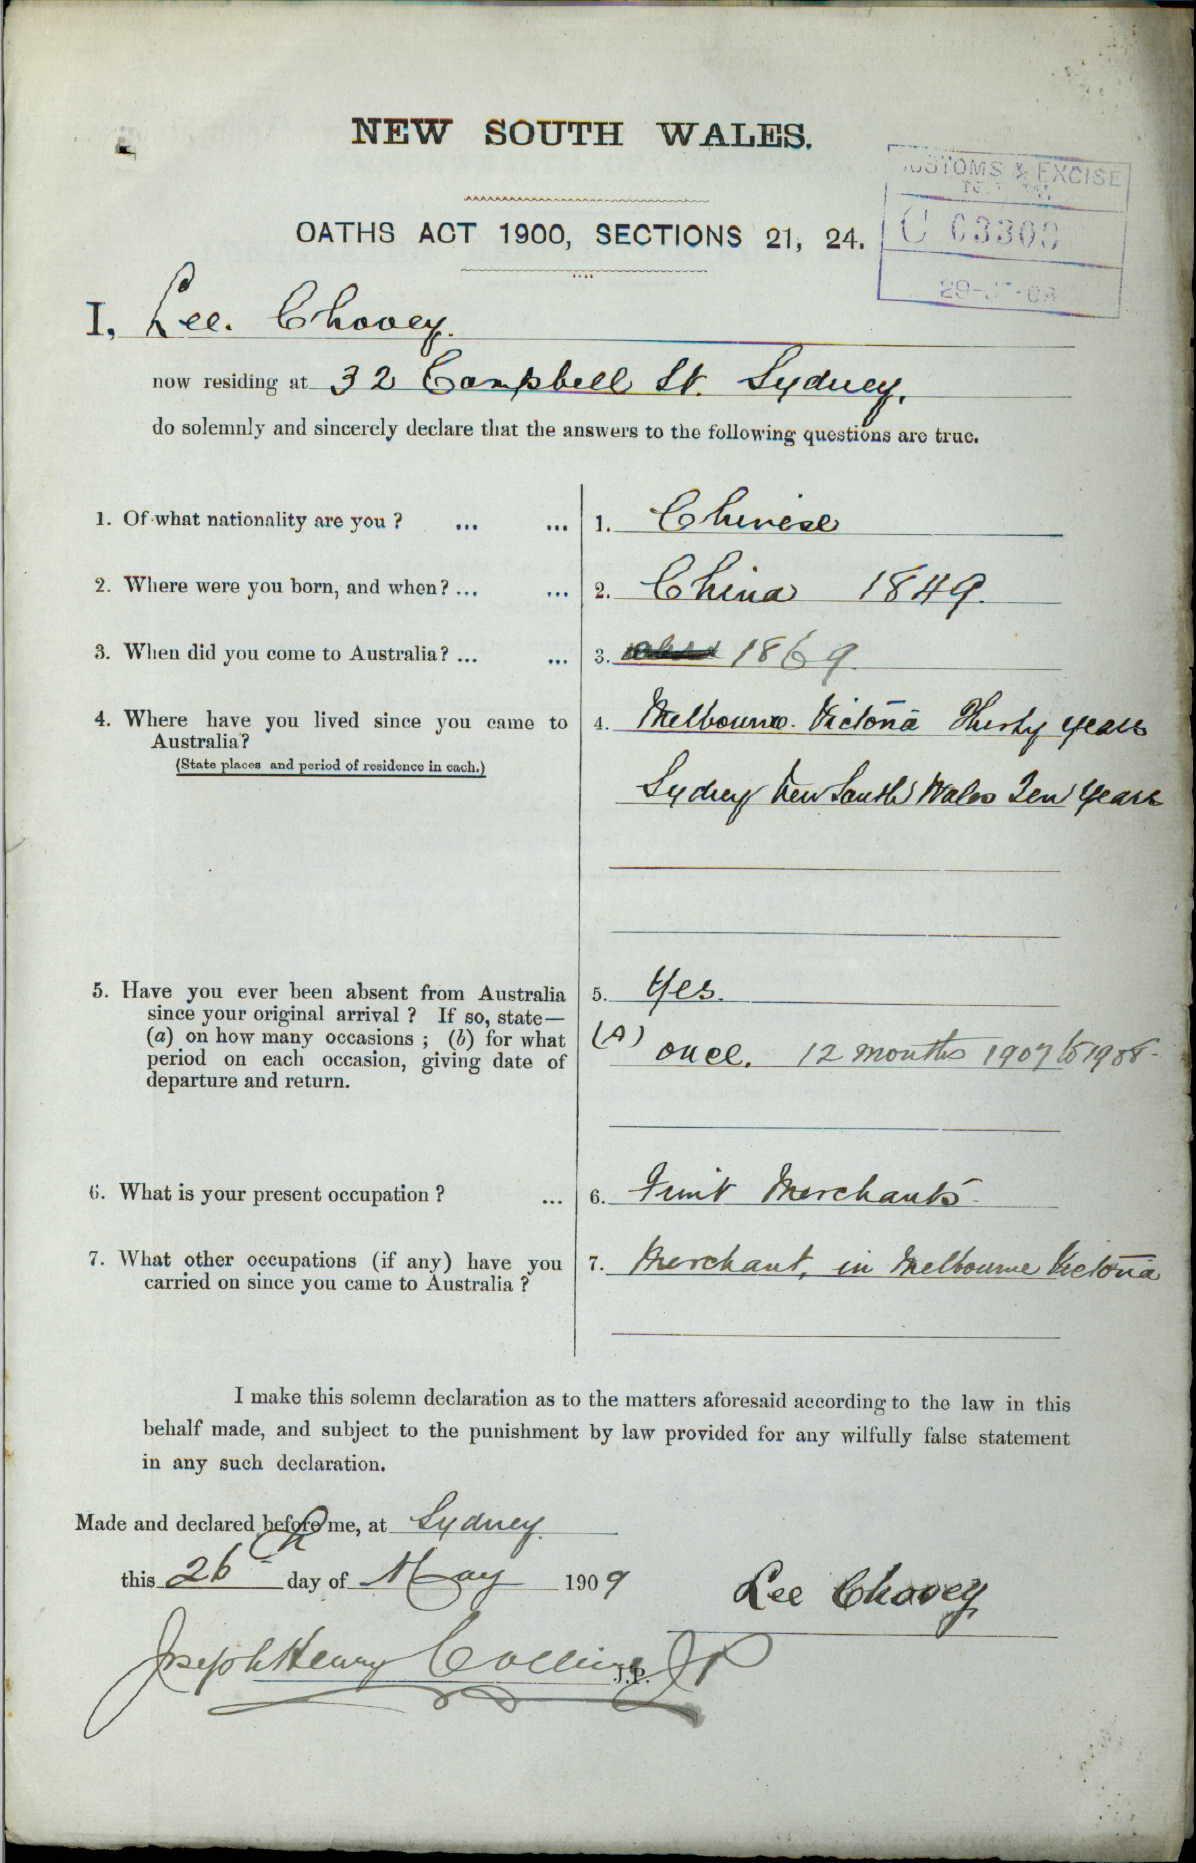 NEW SOUTH WALES.
CUSTOMS & EXCISE
OATHS ACT 1900, SECTIONS 21, 24.
I, Lee. Chovey.
now residing at 32 Campbell St. Sydney.
do solemnly and sincerely declare that the answers to the following questions are true.
1. Of what nationality are you ? ... ... 1. Chinese
2. Where were you born, and when? ... ... 2. China 1849.
3. When did you come to Australia? ... ... 3. 1869.
4. Where have you lived since you came to 4. Melbourne. Victoria Thirty years
Australia?
(State places and period of residence in each.)
Sydney New South Wales Ten Years
5. Have you ever been absent from Australia 5. Yes.
since your original arrival ? If so, state—
(a) on how many occasions ; (b) for what (A) once. 12 months 1907 to 1908-
period on each occasion, giving date of
departure and return.
6. What is your present occupation ? ... 6. Fruit Merchants
7. What other occupations (if any) have you 7. Merchant, in Melbourne Victoria
carried on since you came to Australia ?
I make this solemn declaration as to the matters aforesaid according to the law in this
behalf made, and subject to the punishment by law provided for any wilfully false statement
in any such declaration.
Made and declared before me, at Sydney.
this 26th day of May 1909
Lee Chovey
Joseph Henry Collins J.P. JP